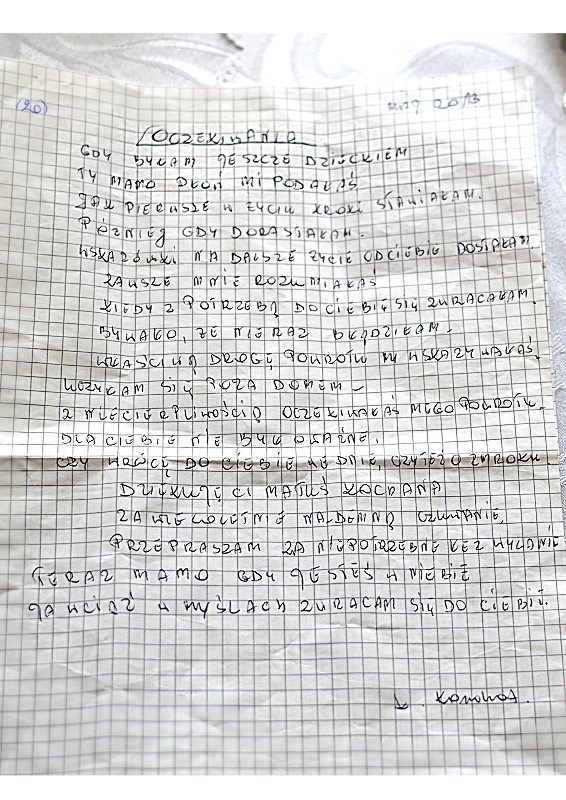 (20)
MAJ 2013
OCZEKIWANIA
GDY BYŁAM JESZCZE DZIECKIEM
TY MAMO DŁOŃ MI PODAŁAŚ
JAK PIERWSZE W ŻYCIU KROKI STAWIAŁAM.
PÓŹNIEJ GDY DORASTAŁAM.
WSKAZÓWKI NA DALSZE ŻYCIE OD CIEBIE DOSTAŁAM.
ZAWSZE MNIE ROZUMIAŁAŚ
KIEDY Z POTRZEBĄ DO CIEBIE SIĘ ZWRACAŁAM.
BYWAŁO, ŻE NIERAZ BŁĄDZIŁAM.
WŁAŚCIWĄ DROGĘ POWROTU MI WSKAZYWAŁAŚ.
SIĘ POZA DOMEM –
Z NIECIERPLIWOŚCIĄ OCZEKIWAŁAŚ MEGO POWROTU.
DLA CIEBIE NIE BYŁO WAŻNE.
CZY WRÓCĘ DO CIEBIE WE DNIE, CZY TEŻ O ZMROKU.
DZIĘKUJĘ CI MATUŚ KOCHANA
ZA WIELOLETNIE NADEMNĄ CZUWANIE,
PRZEPRASZAM ZA NIEPOTRZEBNE ŁEZ WYLANIE
TERAZ MAMO GDY JESTEŚ W NIEBIE
JA WCIĄŻ W MYŚLACH ZWRACAM SIĘ DO CIEBIE.